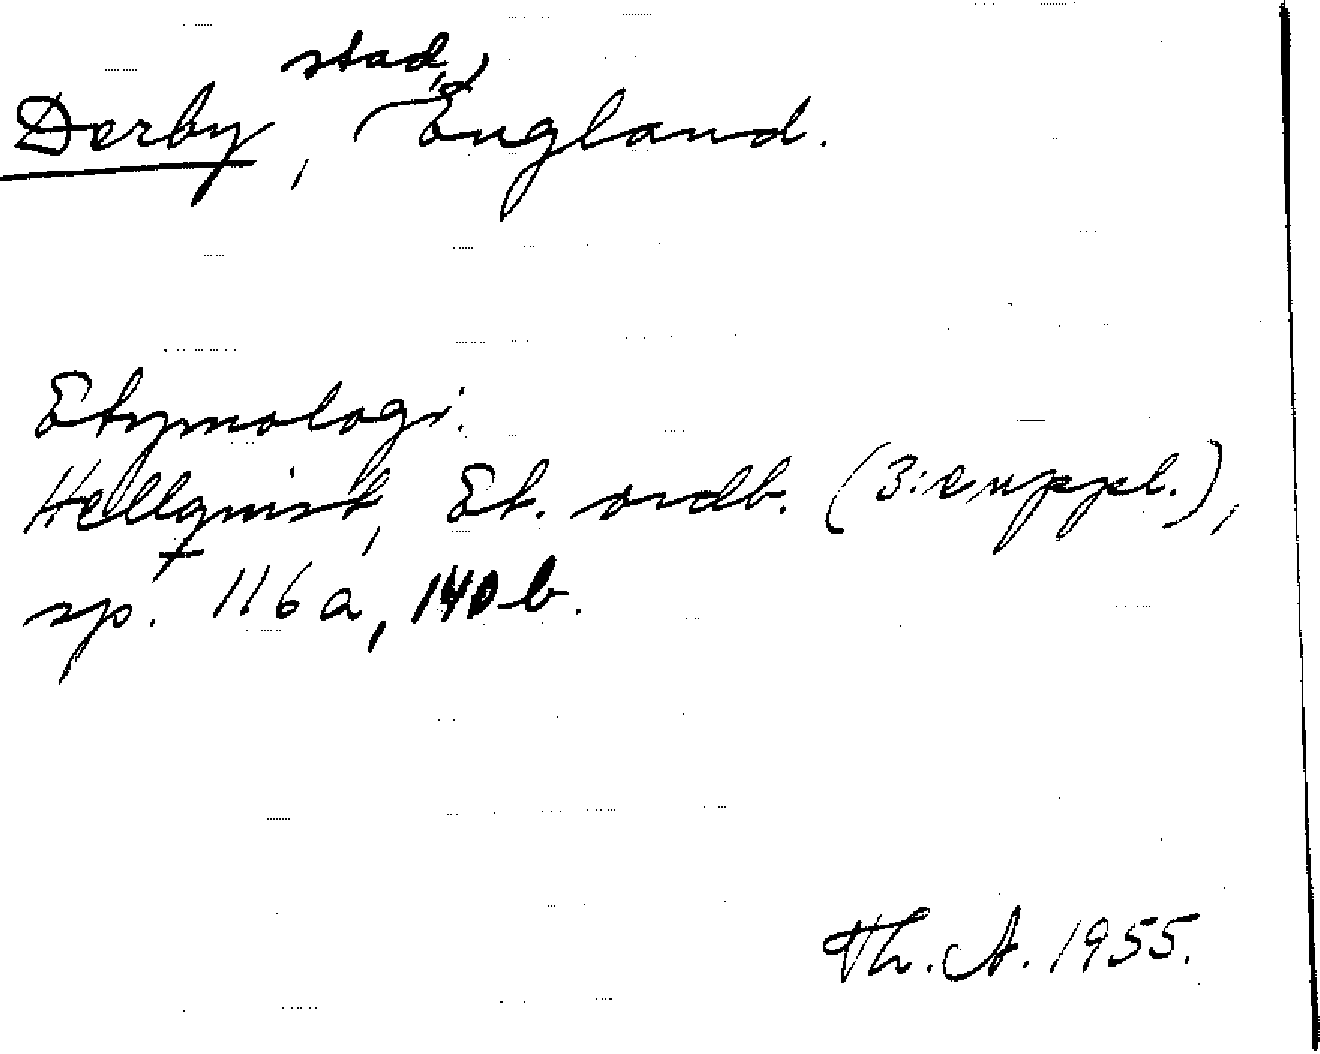 Derby, stad, England.
Etymologi.
Hellquist, Et. ordb. (3:e uppl.),
sp. 116a, 140b.
Th. A. 1955.